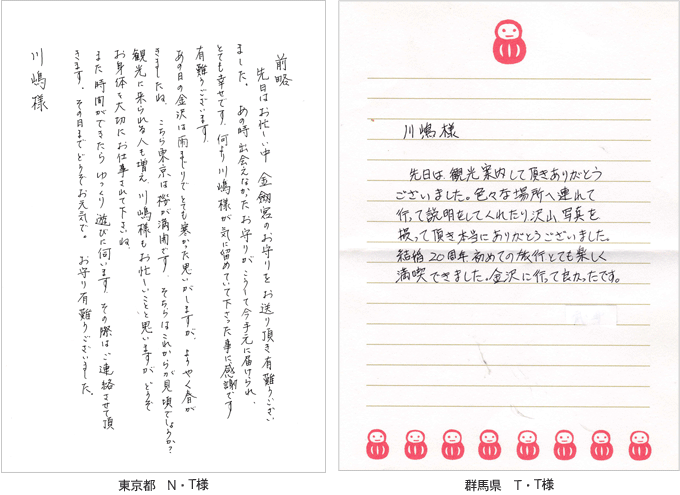 前略
先日はお忙しい中 金劔宮のお守りをお送り頂き有難うござい
ました。あの時出会えなかったお守りが、こうして今手元に届けられ、
とても幸せです。何より川嶋様が気に留めていて下さった事に感謝です
有難うございます。
あの日の金沢は雨まじりでとても寒かった思いがしますが、ようやく春が
きましたね。こちら東京は桜が満開です。そちらはこれからが見頃でしょうか?
観光に来られる人も増え、川嶋様もお忙しいことと思いますが、どうぞ
お身体を大切にお仕事されて下さいね。
また時間ができたら ゆっくり遊びに伺います。その際はご連絡させて頂
きます。その日までどうぞお元気で。お守り有難うございました。
川嶋様
東京都 N・T様
川嶋様
先日は、観光案内して頂きありがとう
ございました。色々な場所へ連れて
行って説明をしてくれたり沢山写真を
撮って頂き本当にありがとうございました。
結婚20周年初めての旅行とても楽しく
満喫できました。金沢に行って良かったです。
群馬県 T・T様